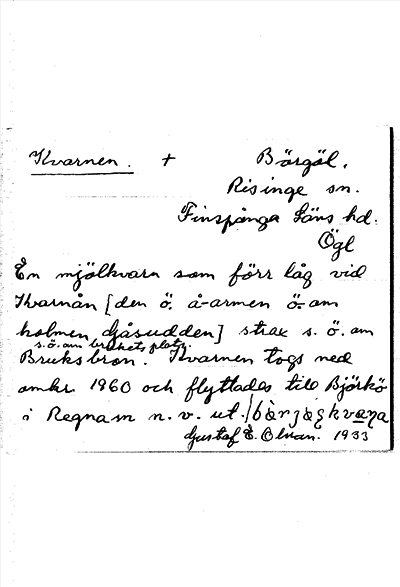 Kvarnen. +
Börgöl.
Risinge sn.
Finspånga Läns hd.
Ögl
En mjölkvarn som förr låg vid
Kvarnån [den ö. å-armen ö. om
holmen Djäsudden] strax s. ö. om
s.ö. om brukets plats.
Bruksbron. Kvarnen togs ned
omkr. 1960 och flyttades till Björkö
i Regna m n. v. ut.
Gustaf E. Olsson. 1933